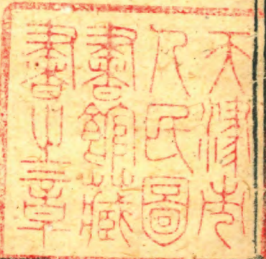 天津市
人民圖
書館藏
書之章